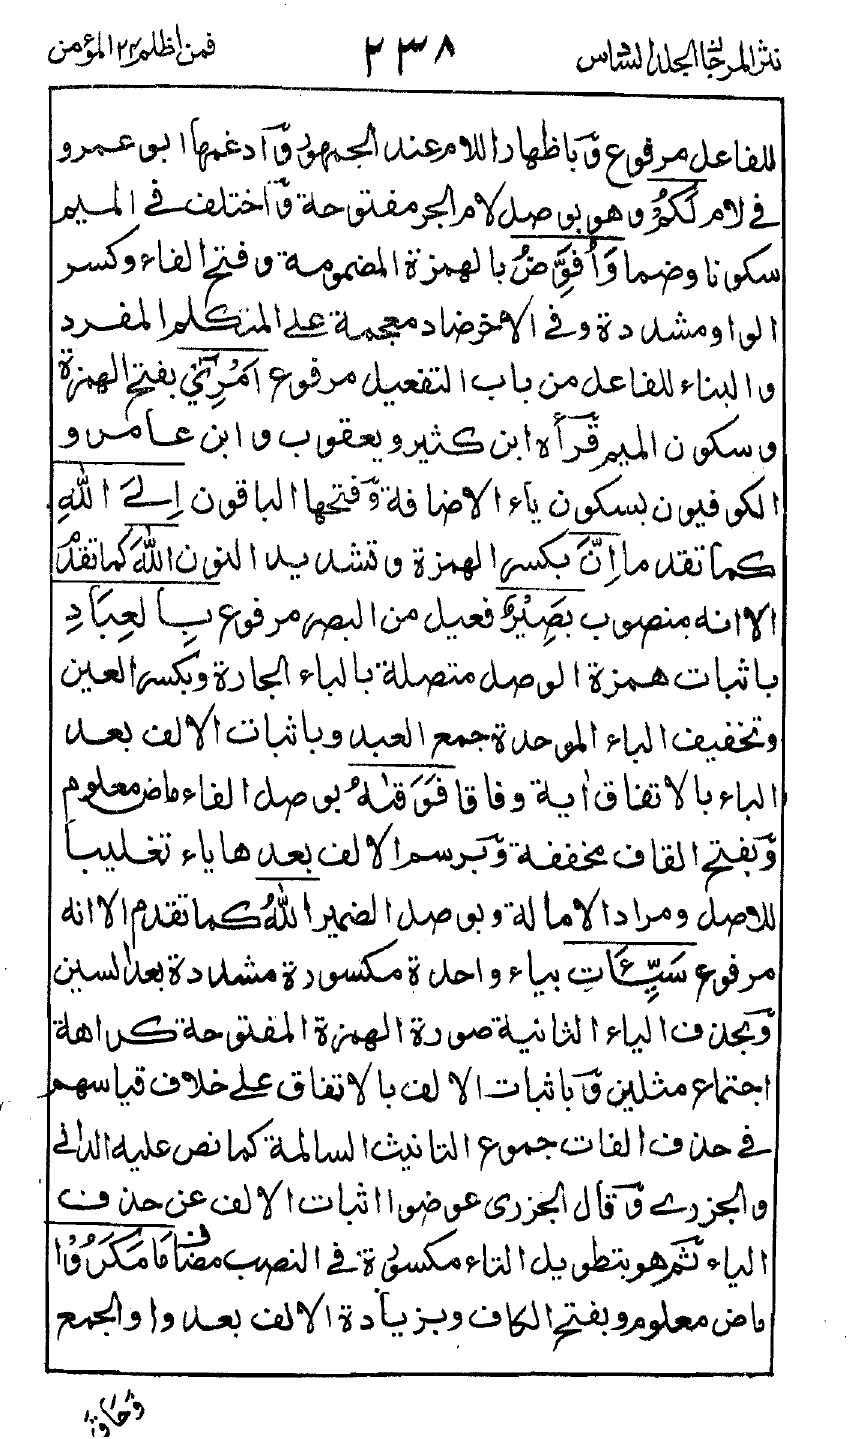 نثر المرجان المجلد السادس ٢٣٨ فمن اظلم ٢٤ المؤمن
للفاعل مرفوع وّباظهار اللام عند الجمهور وّادغمها ابو عمرو
فى لام لَكُمْ وهو بوصل لام الجر مفتوحة وّاختلف فى الميم
سكونا وضما وَأُفَوِّضُ بالهمزة المضمومة وفتح الفاء وكسر
الواو مشددة وفى الاخر ضاد معجمة على المتكلم المفرد
والبناء للفاعل من باب التفعيل مرفوع اَمْرِىْ بفتح الهمزة
وسكون الميم قرأه ابن كثير ويعقوب وابن عامر و
الكوفيون بسكون ياء الاضافة وّفتحها الباقون اِلَى اللّٰهِ
كما تقدما اِنَّ بكسر الهمزة وتشديد النون اللّٰهَ كما تقدم
الا انه منصوب بَصِيْرٌ فعيل من البصر مرفوع بِالعِبَادِ
باثبات همزة الوصل متصلة بالباء الجارة وبكسر العين
وتخفيف الباء الموحدة جمع العبد وباثبات الالف بعد
الباء بالاتفاق اٰية وفاقا فَوَقٰىهُ بوصل الفاء ماض معلوم
وّبفتح القاف مخففة وّبرسم الالف بعدها ياء تغليبا
للاصل ومراد الامالة وبوصل الضمير اللّٰهُ كما تقدم الا انه
مرفوع سَيِّئَاتِ بياء واحدة مكسورة مشددة بعد السين
وّبحذف الياء الثانية صورة الهمزة المفتوحة كراهة
اجتماع مثلين وّباثبات الالف بالاتفاق على خلاف قياسهم
فى حذف الفات جموع التانيث السالمة كما نص عليه الدانى
والجزرى وّقال الجزرى عوضوا اثبات الالف عن حذف
الياء ثم هو بتطويل التاء مكسورة فى النصب مضاف مَا مَكَرُوْا
ماض معلوم وبفتح الكاف وبزيادة الالف بعد واو الجمع
وَحَاقَ